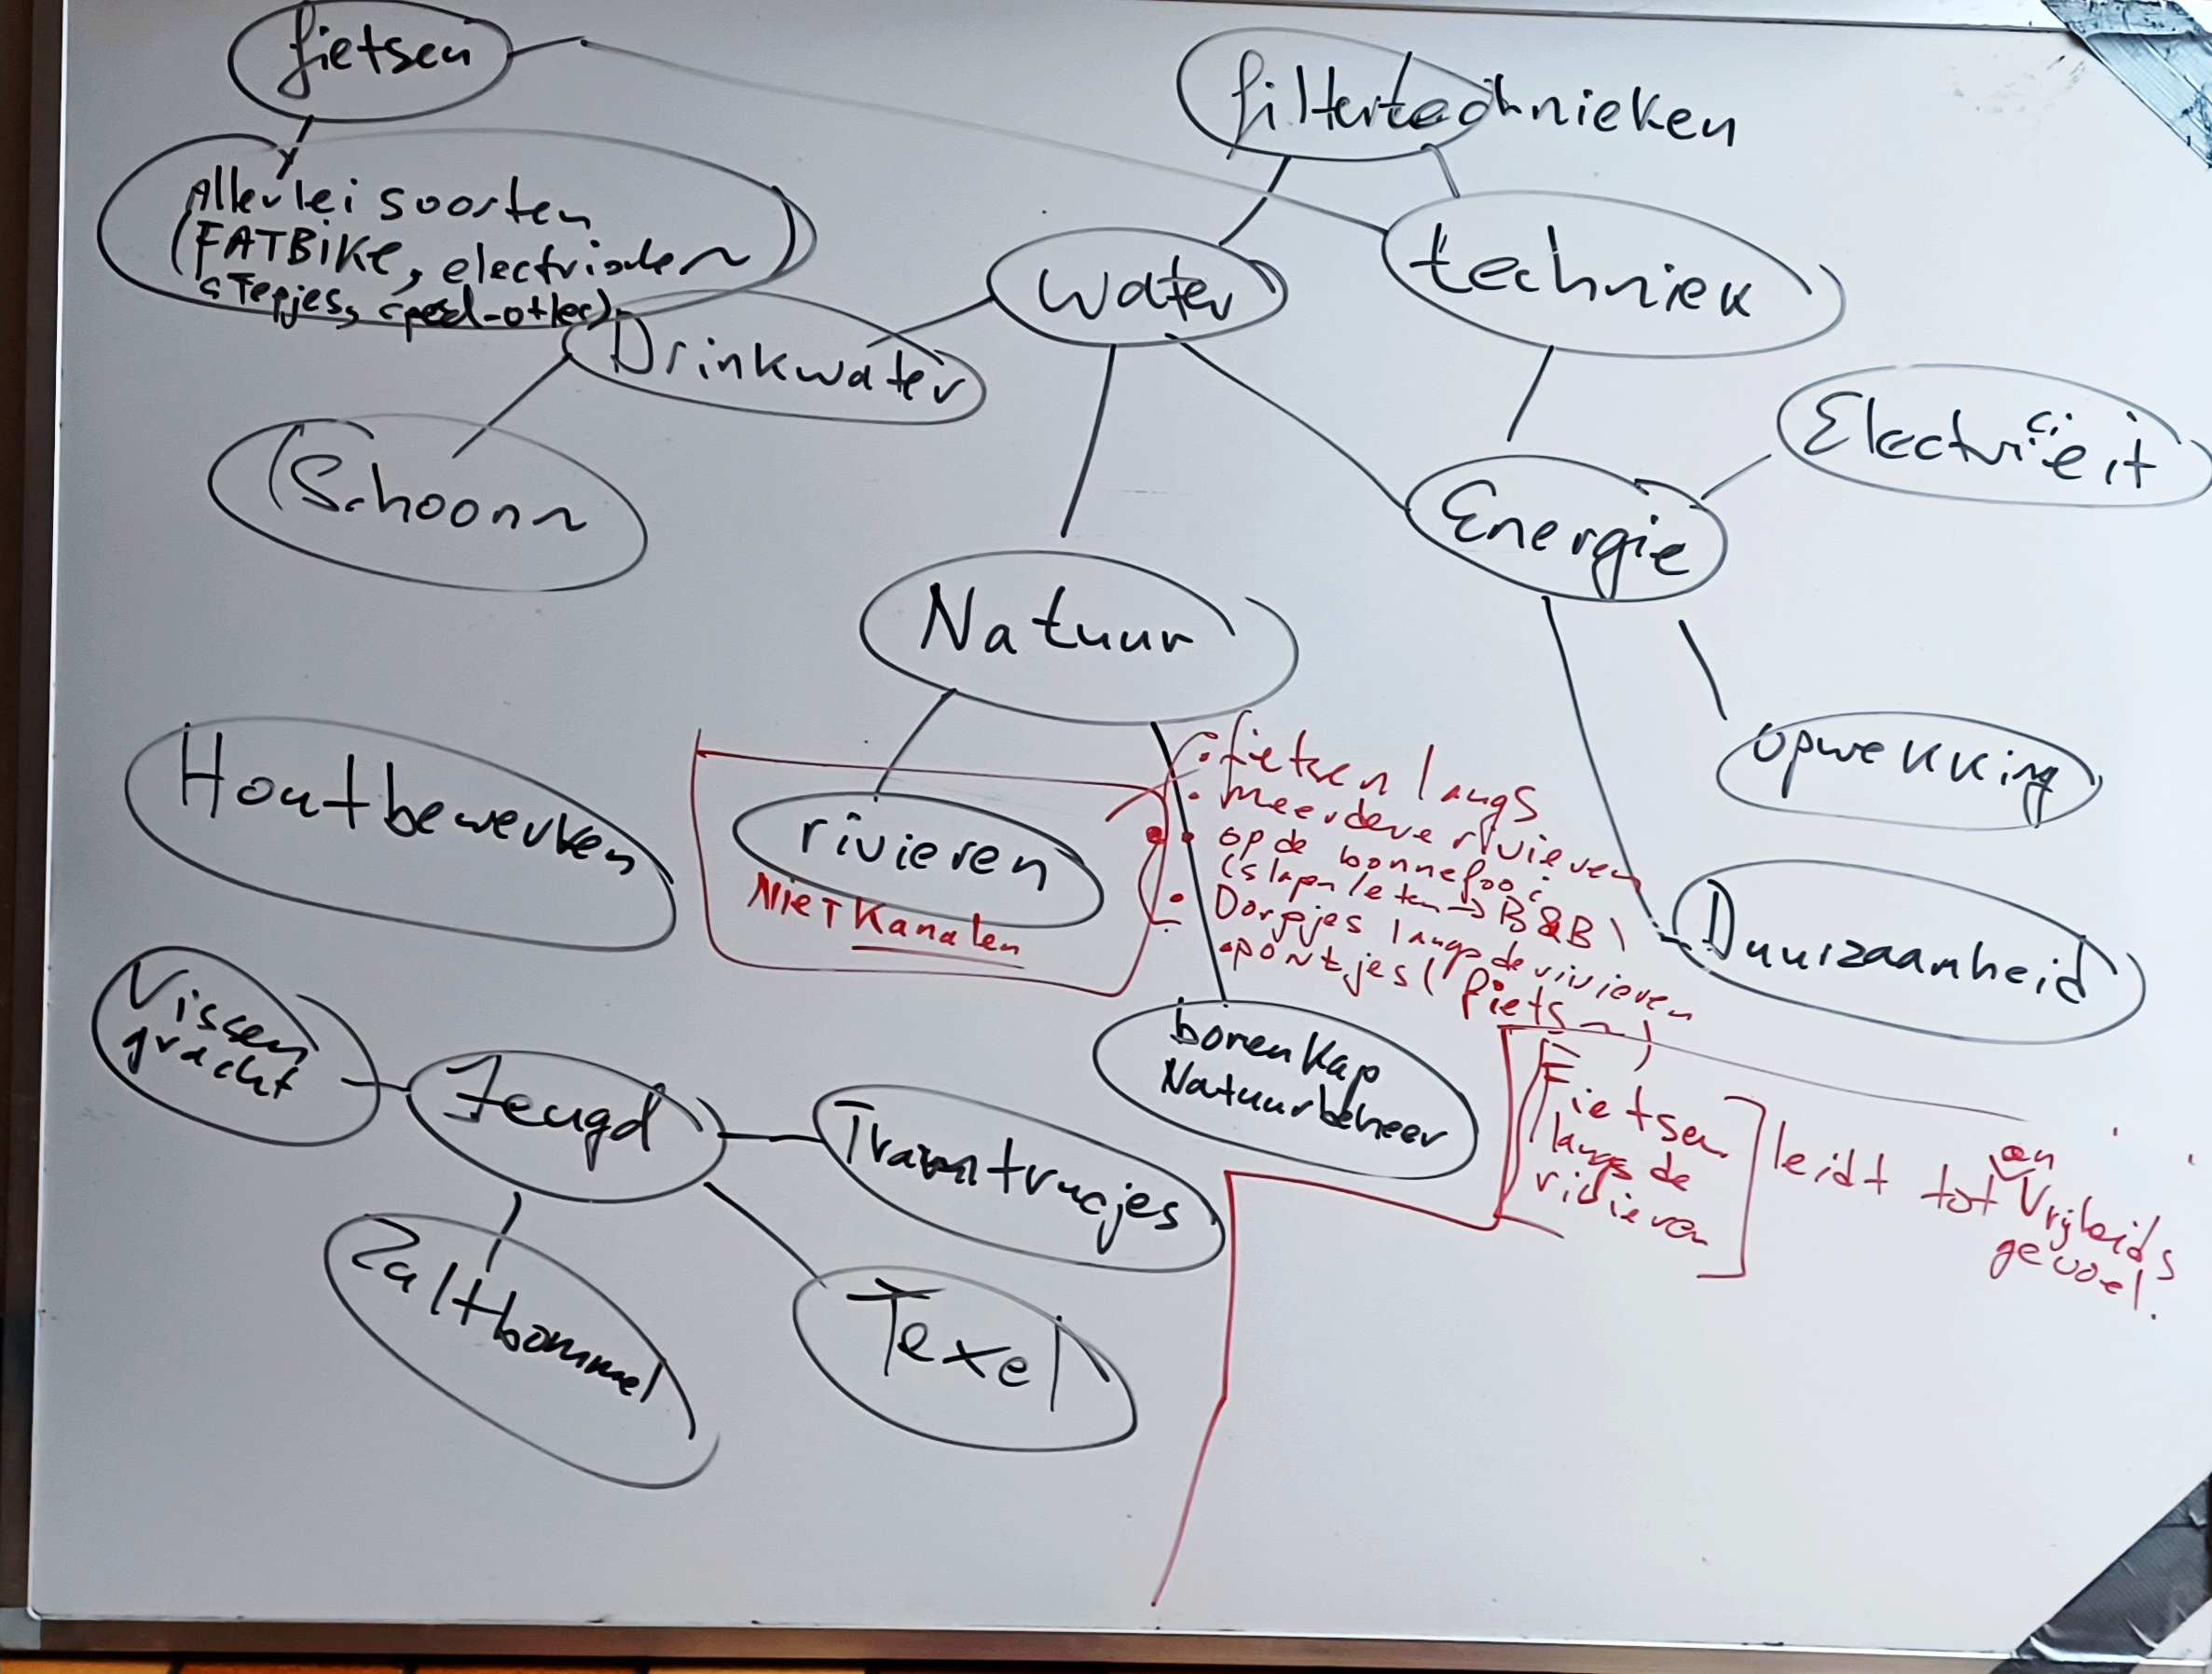 fietsen
filtertechnieken
Allerlei soorten
(FATBIKE, electrische
STepjes,
water
techniek
Drinkwater
Electriciëit
Schoon
Energie
Natuur
opwekking
Houtbewerken
rivieren
NIET Kanalen
• fietsen langs
• meerdere rivieren
• op de bonnefooi
(slapen/eten → B&B)
• Dorpjes langs de rivieren
• pontjes (fiets~)
Duurzaamheid
bomenkap
Natuurbeheer
Vissen
gracht
Jeugd
Tramtrucjes
Zaltbommel
Texel
Fietsen
langs de
rivieren
leidt tot een
Vrijheids
gevoel.